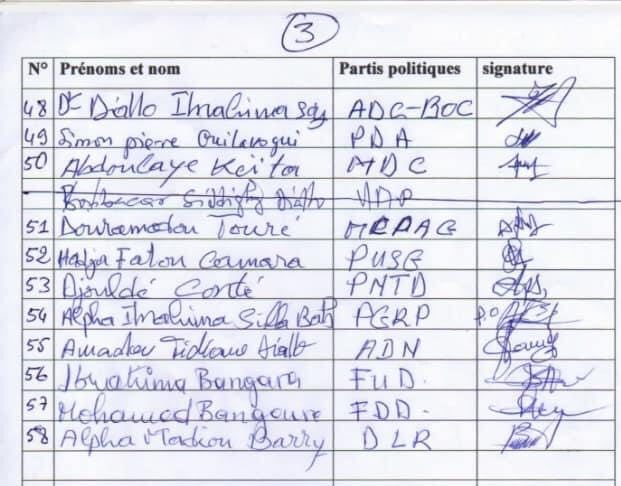 3
N° Prénoms et nom Partis politiques signature
48 Dr Diallo Ibrahima Sory ADC-BOC
49 Simon pierre PDA
50 Abdoulaye Keita MDC
51 Touré
52 Hadja Fatou Camara PUSG
53 Djouldé Conté PNTD
54 Alpha Ibrahima Silla Bah PGRP
55 Amadou Tidiane Diallo ADN
56 Ibrahima Bangara FUD.
57 Mohamed Bangoura FDD.
58 Alpha Madiou Barry DLR